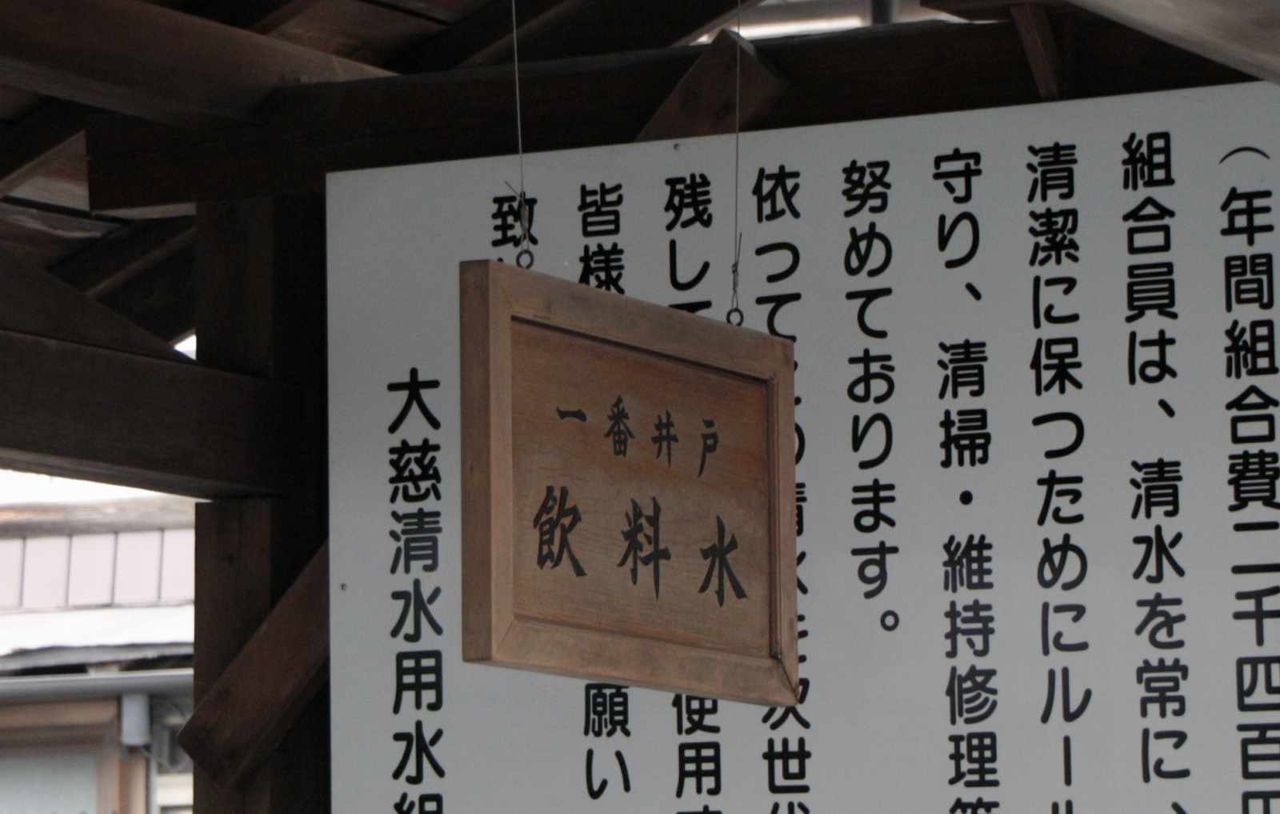 （年間組合費二千四百円
組合員は、清水を常に、
清潔に保つためにルール
守り、清掃・維持修理等
努めております。
依つて
清水を次世代
残して
使用
皆様
願い
致
大慈清水用水組
一番井戸
飲料水